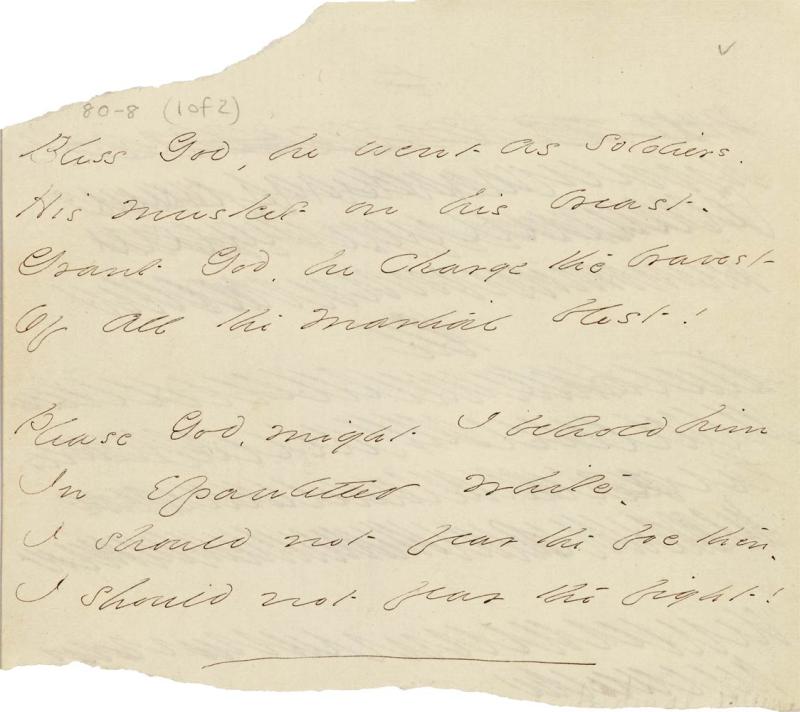 80-8 (1 of 2)
Bless God, he went as soldiers.
His musket on his breast.
Grant God, he charge the bravest
Of all the martial blest!
Please God, might I behold him
In Epauletted White.
I should not fear the foe then.
I should not fear the fight!